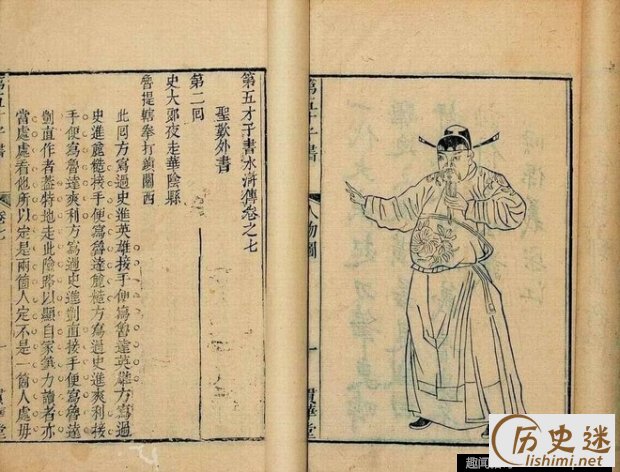 第五才子書
人物圖
一
貫華堂
第五才子書水滸傳卷之七
聖歎外書
第二回
史大郎夜走華陰縣
魯提轄拳打鎮關西
此回方寫過史進英雄接手便寫魯達英雄方寫過
史進麄糙接手便寫魯達麄糙方寫過史進爽利接
手便寫魯達爽利方寫過史進剴直接手便寫魯達
剴直作者蓋特地走此險路以顯自家筆力讀者亦
當處處看他所以定是兩箇人定不是一箇人處毋
第五才子書
卷七
一
貫華堂
历史迷
lishimi.net
趣闻